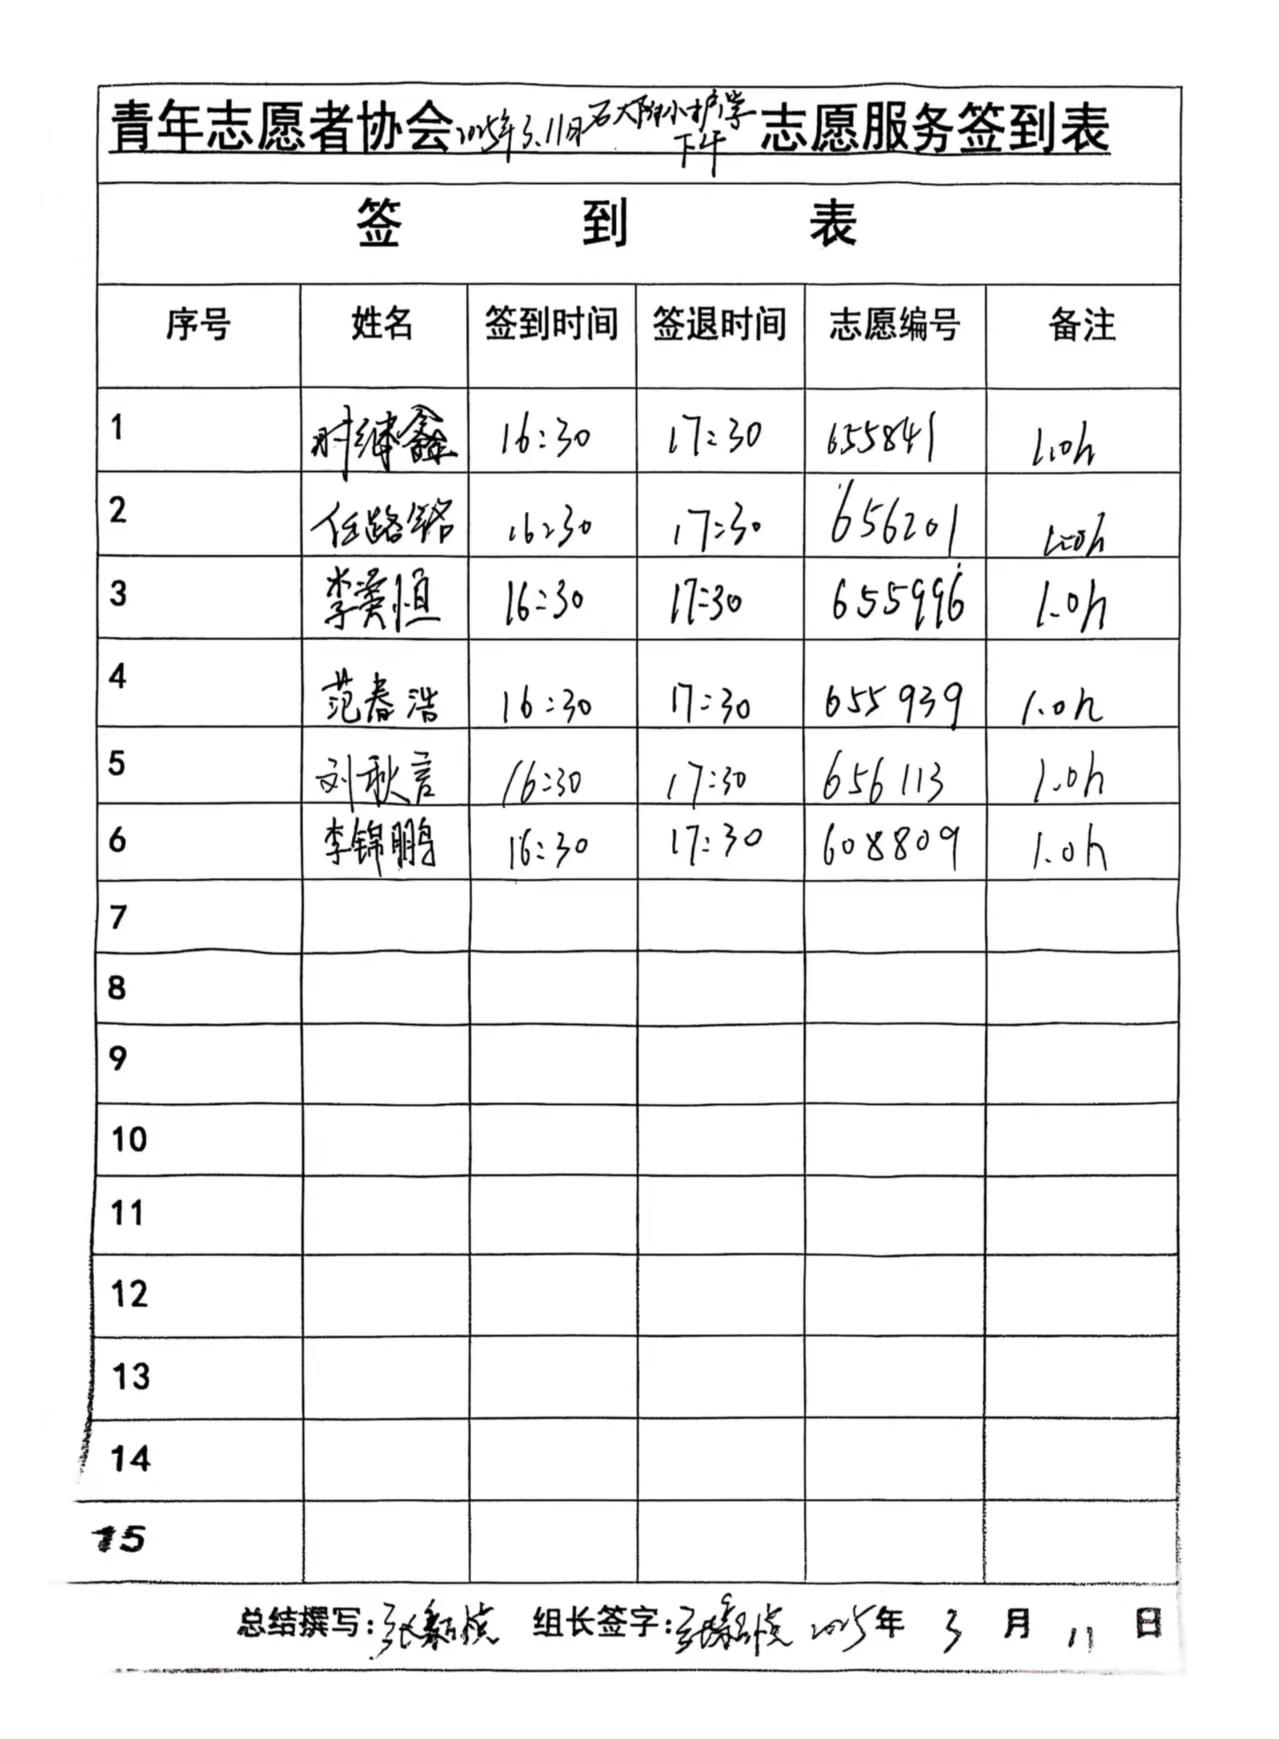 青年志愿者协会2025年3.11日石大附小护学下午志愿服务签到表
签 到 表
序号 姓名 签到时间 签退时间 志愿编号 备注
1 时继鑫 16:30 17:30 655841 1.0h
2 任路铭 16:30 17:30 656201 1.0h
3 李奕恒 16:30 17:30 655996 1.0h
4 范春浩 16:30 17:30 655939 1.0h
5 刘秋言 16:30 17:30 656113 1.0h
6 李锦鹏 16:30 17:30 608809 1.0h
7
8
9
10
11
12
13
14
15
总结撰写: 组长签字: 2025年 3 月 11 日